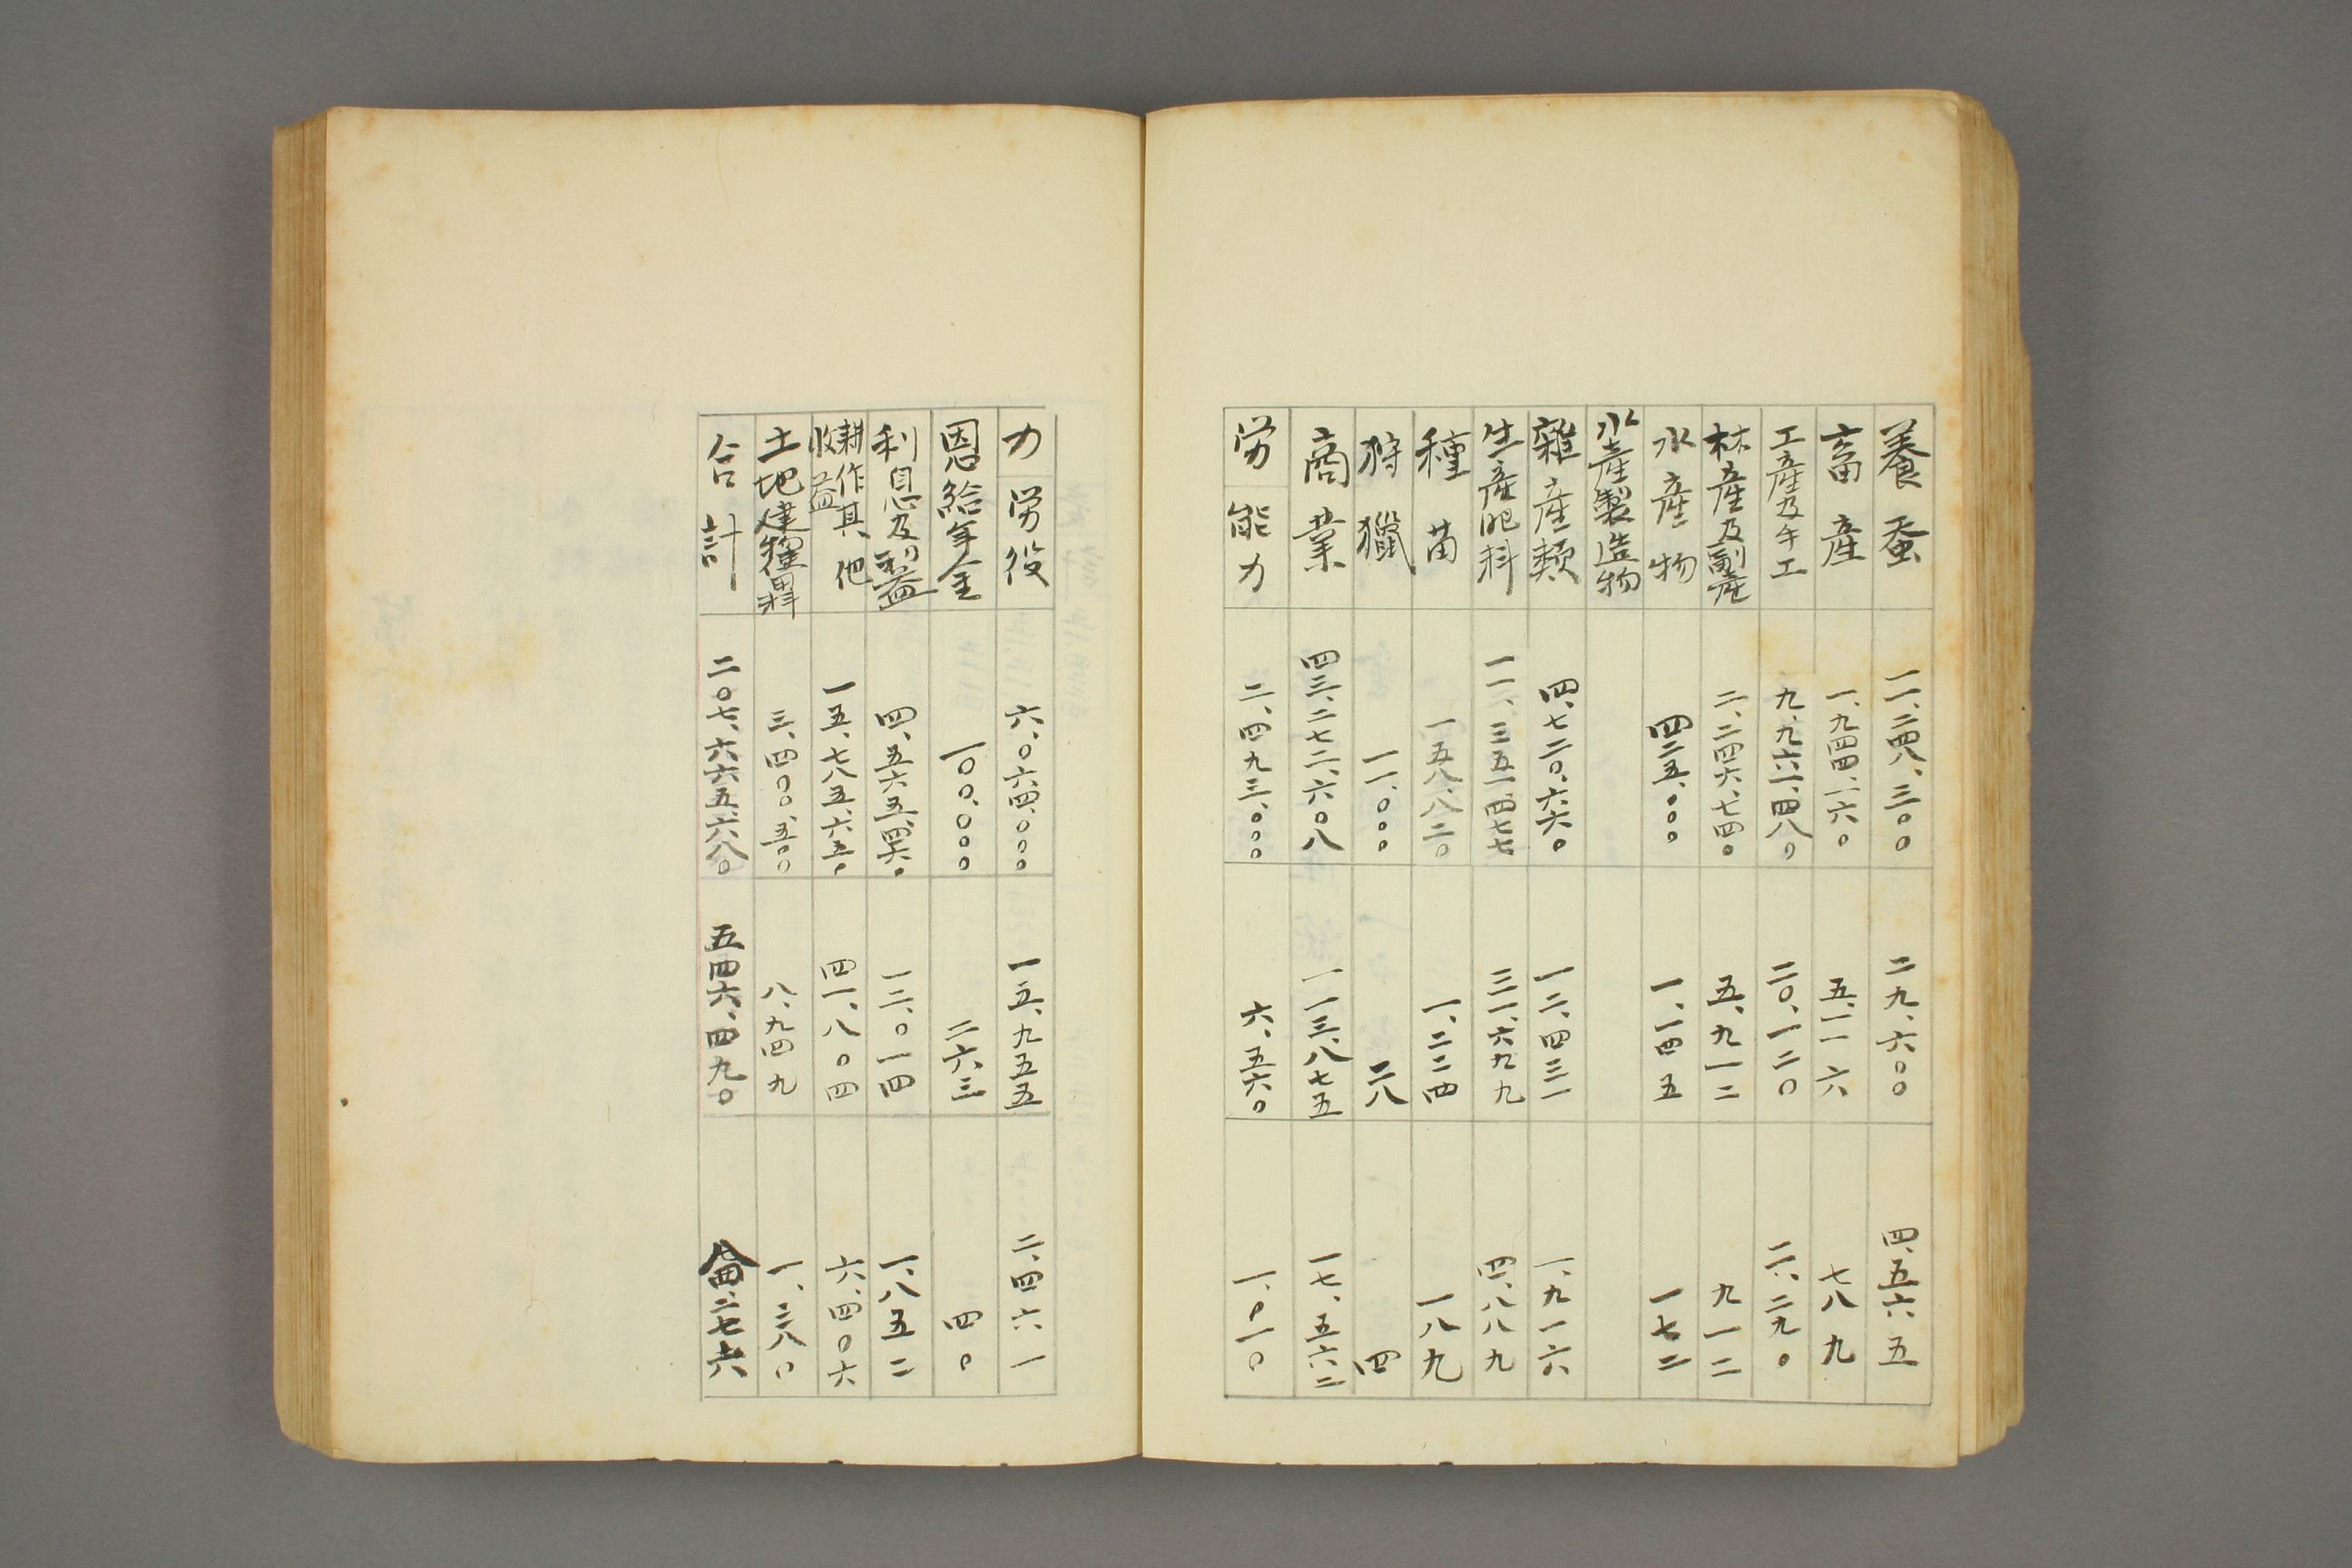 養蚕 一一、二四八、三〇〇 二九、六〇〇 四、五六五
畜産 一、九四四、一六〇 五、一一六 七八九
工産及手工 九、九六一、四八〇 二〇、一二〇 二、二九〇
林産及副産 二、二四六、七四〇 五、九一二 九一二
水産物 四三五、〇〇〇 一、一四五 一七二
水産製造物
雜産類 四、七二〇、六六〇 一二、四三一 一、九一六
生産肥料 一一、三五一、四七七 三一、六九九 四、八八九
種苗 一五八、八二〇 一、二二四 一八九
狩獵 一一、〇〇〇 二八 四
商業 四三、二七二、六〇八 一一三、八七五 一七、五六二
労能力 二、四九三、〇〇〇 六、五六〇 一、〇一〇
力労役 六、〇六四、〇〇〇 一五、九五五 二、四六一
恩給年金 一〇〇、〇〇〇 二六三 四〇
利息及利益 四、五六五、四六〇 一二、〇一四 一、八五二
耕作其他収益 一五、七八五、六五〇 四一、八〇四 六、四〇六
土地建物貸料 三、四〇〇、五〇〇 八、九四九 一、三八〇
合計 二〇七、六六五、六八〇 五四六、四九〇 八四、二七六